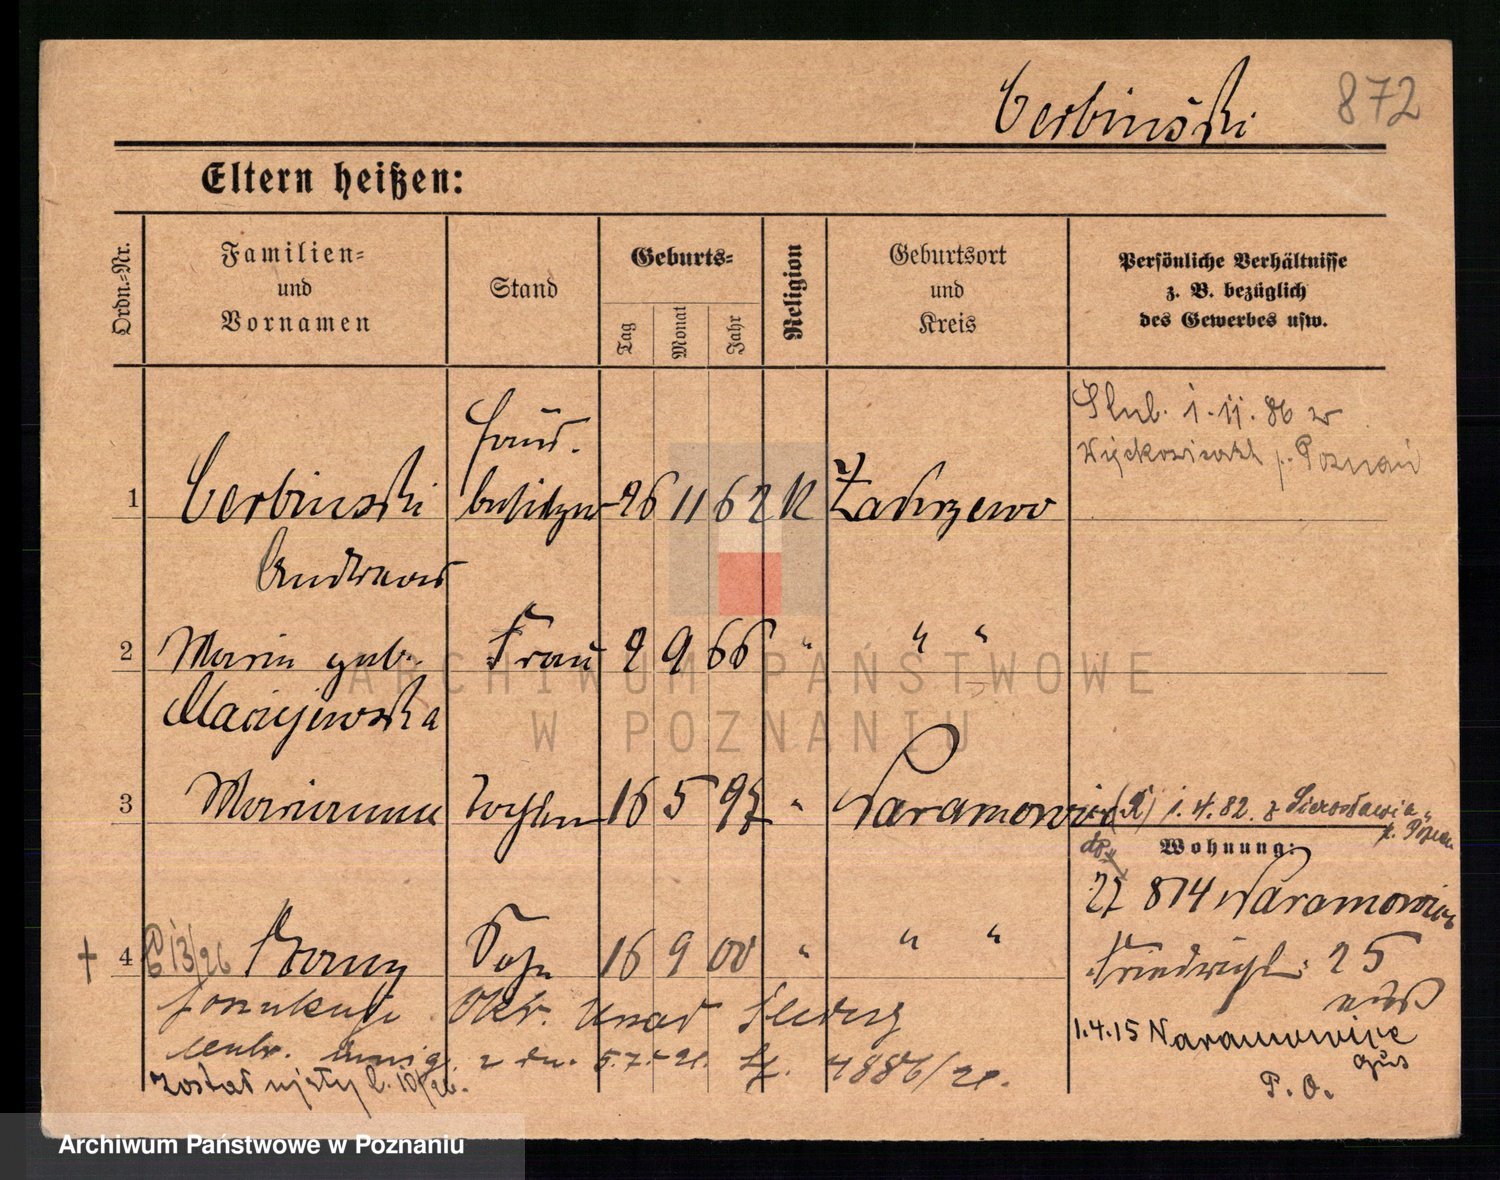 Cerbinski
872
Eltern heißen:
Ordn.-Nr.
Familien-
und
Vornamen
Stand
Geburts-
Tag
Monat
Jahr
Religion
Geburtsort
und
Kreis
Persönliche Verhältnisse
z. B. bezüglich
des Gewerbes usw.
Ślub. 1.11.86 w
Więckowicach p. Poznań
1 Cerbinski 26 11 62 K Zakrzewo
Andreas
2 Maria geb. Frau 2 9 66 " " "
Maciejewska
3 Marianna Tochter 16 5 97 " Naramowice
1.4.82. z
Wohnung:
27 814 Naramowice
+ 4 13/26 Sohn 16 9 00 " " "
25
poszukuje Okr. Urząd Śledczy
z dn. 5.7.21. 4886/21.
1.4.15 Naramowice
został ujęty 10/26.
P. O.
ARCHIWUM PAŃSTWOWE
W POZNANIU
Archiwum Państwowe w Poznaniu